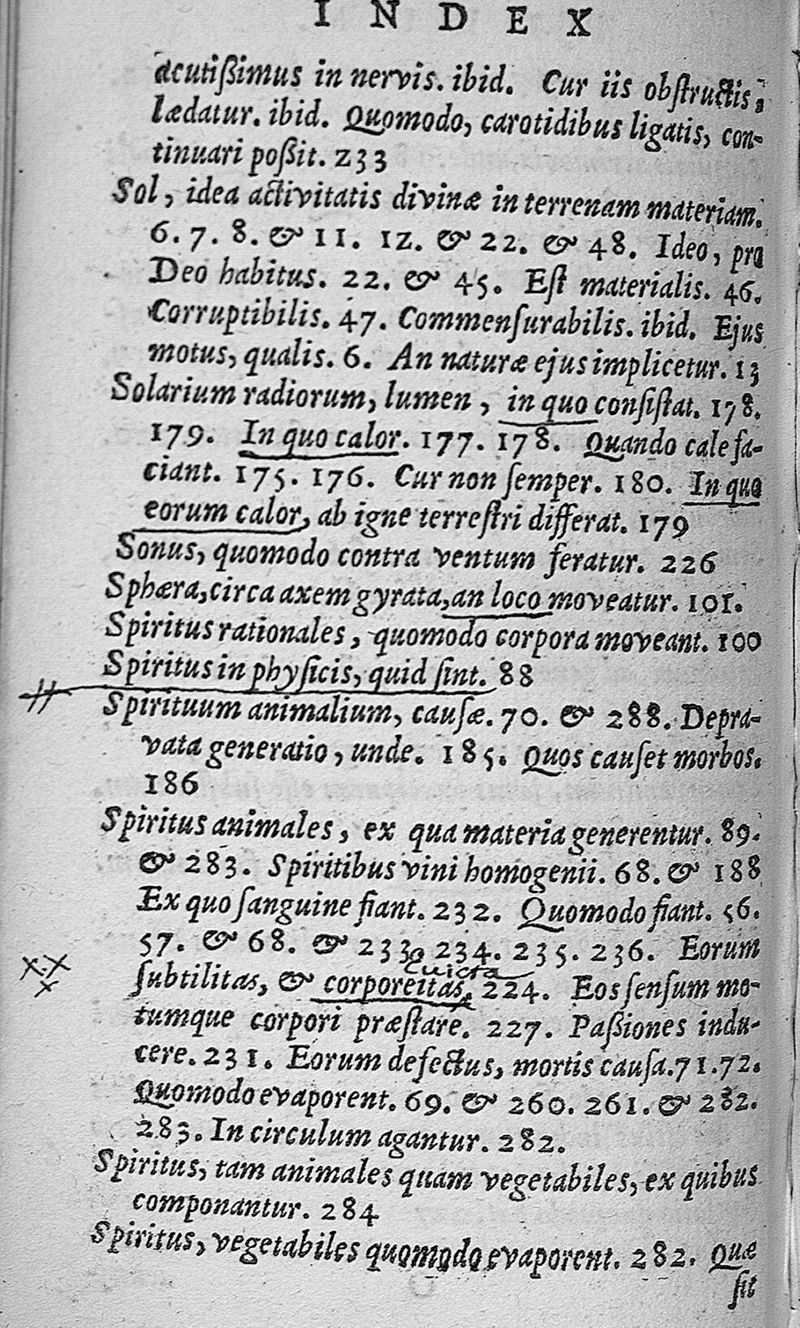 INDEX
acutißimus in nervis. ibid. Cur iis obſtructis,
lædatur. ibid. Quomodo, carotidibus ligatis, con-
tinuari poßit. 233
Sol, idea activitatis divinæ in terrenam materiam.
6. 7. 8. & 11. 12. & 22. & 48. Ideo, pro
Deo habitus. 22. & 45. Eſt materialis. 46.
Corruptibilis. 47. Commenſurabilis. ibid. Ejus
motus, qualis. 6. An naturæ ejus implicetur. 13
Solarium radiorum, lumen, in quo conſiſtat. 178.
179. In quo calor. 177. 178. Quando calefa-
ciant. 175. 176. Cur non ſemper. 180. In quo
eorum calor, ab igne terreſtri differat. 179
Sonus, quomodo contra ventum feratur. 226
Sphæra, circa axem gyrata, an loco moveatur. 101.
Spiritus rationales, quomodo corpora moveant. 100
Spiritus in phyſicis, quid ſint. 88
Spirituum animalium, cauſæ. 70. & 288. Depra-
vata generatio, unde. 185. Quos cauſet morbos.
186
Spiritus animales, ex qua materia generentur. 89.
& 283. Spiritibus vini homogenii. 68. & 188
Ex quo ſanguine fiant. 232. Quomodo fiant. 56.
57. & 68. & 233. 234. 235. 236. Eorum
ſubtilitas, & corporeitas, 224. Eos ſenſum mo-
tumque corpori præſtare. 227. Paßiones indu-
cere. 231. Eorum defectus, mortis cauſa. 71. 72.
Quomodo evaporent. 69. & 260. 261. & 282.
283. In circulum agantur. 282.
Spiritus, tam animales quam vegetabiles, ex quibus
componantur. 284
Spiritus, vegetabiles quomodo evaporent. 282. Quæ
ſit